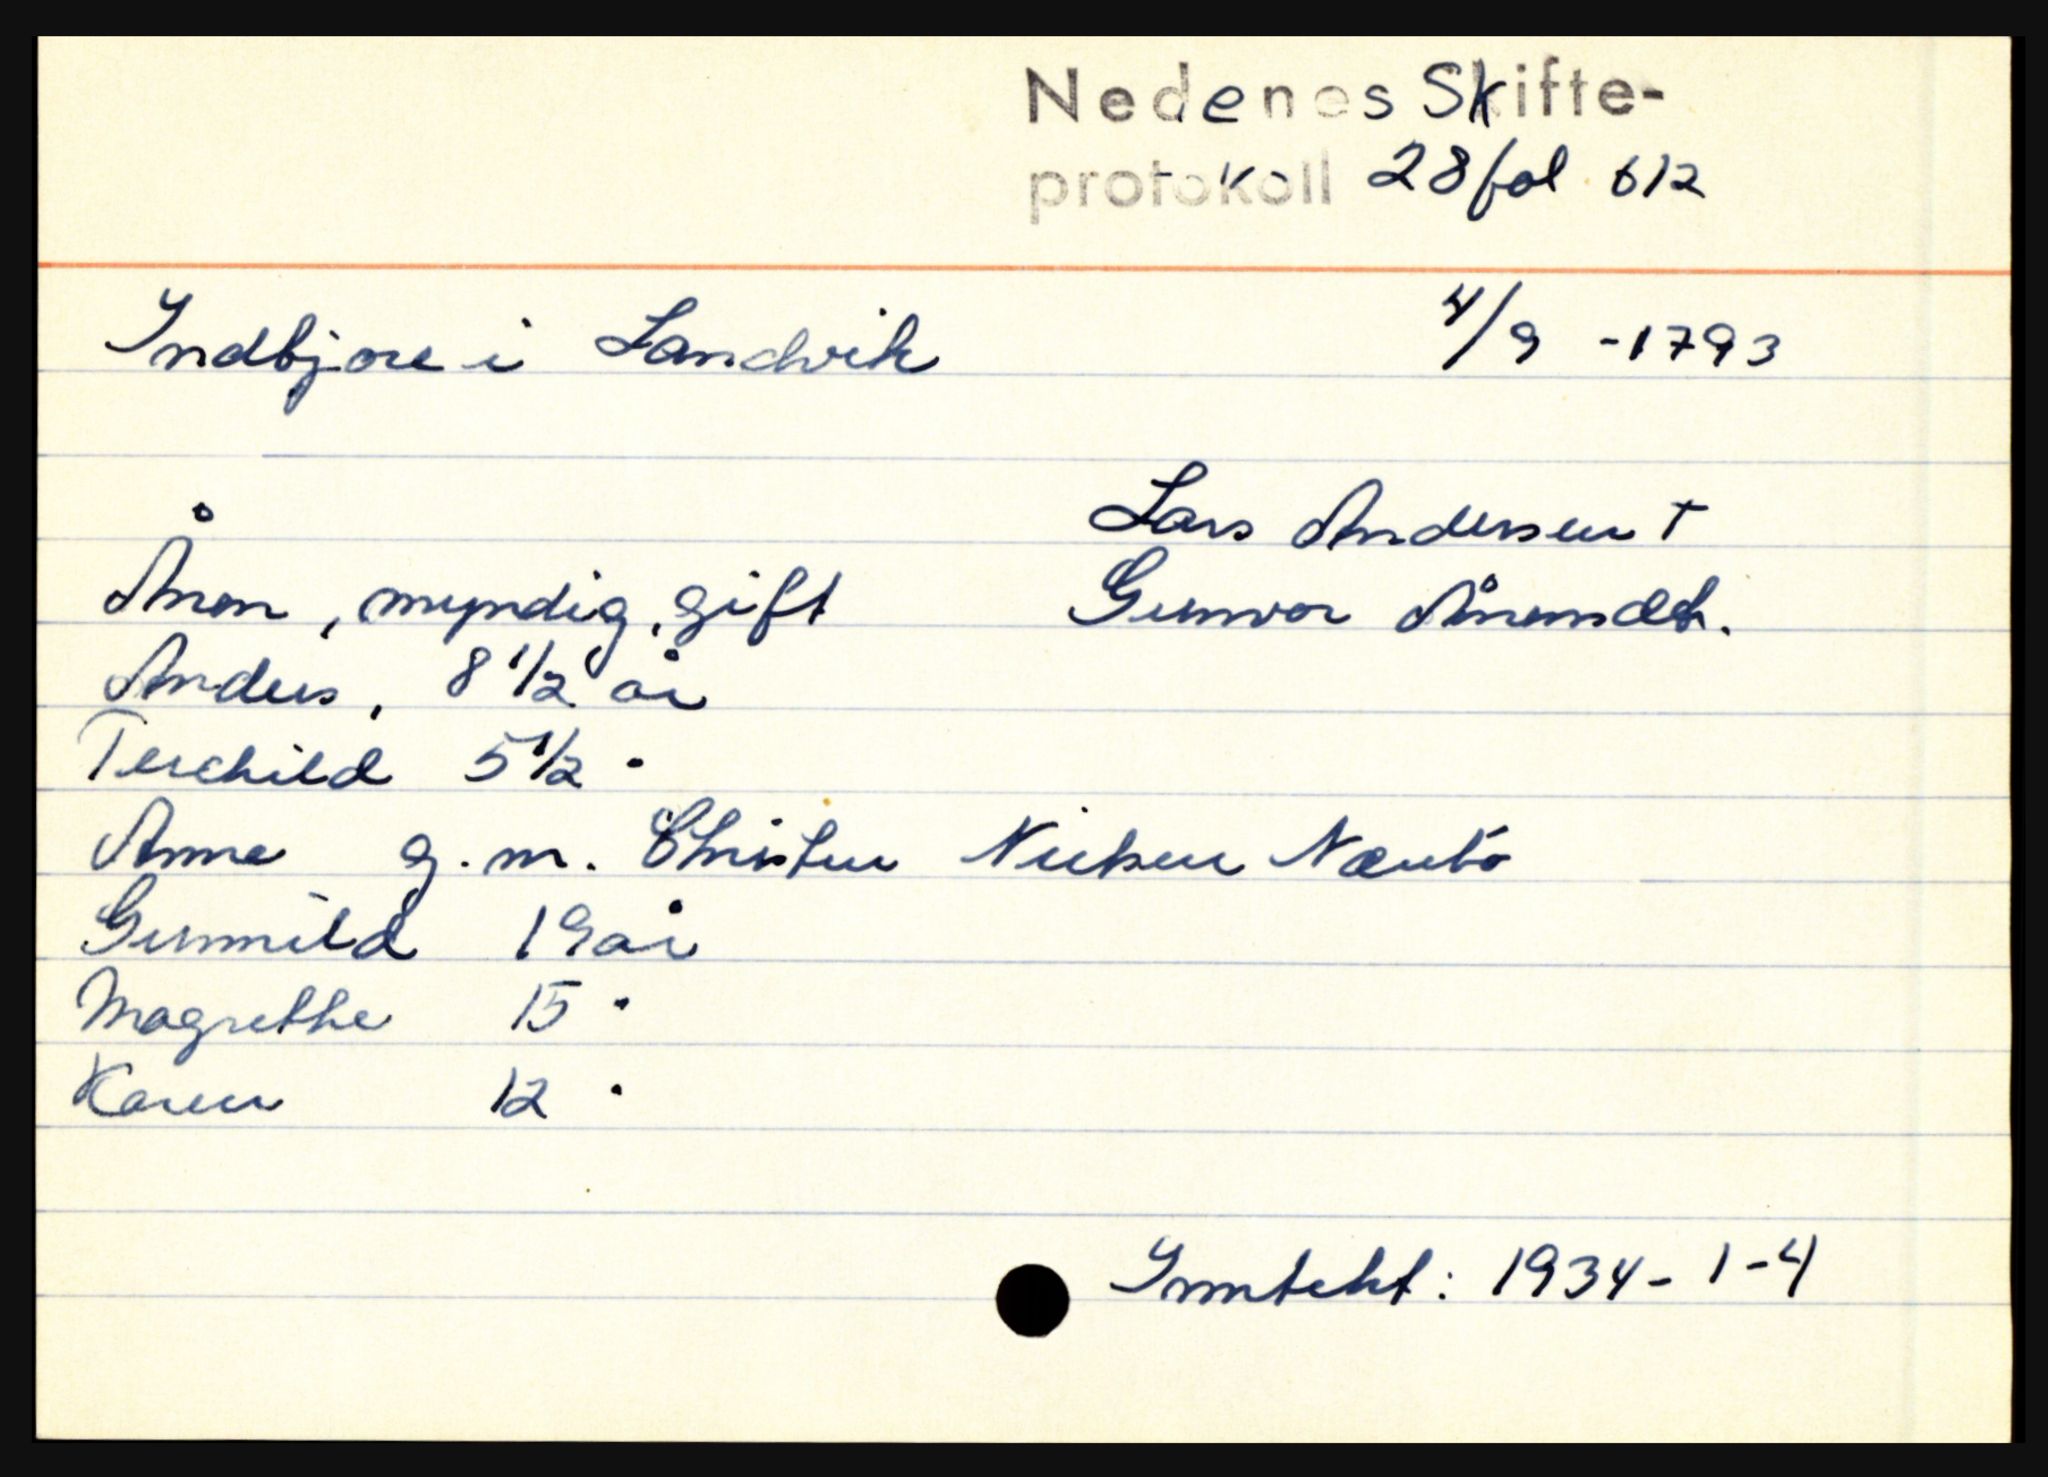 Nedenes Skifte-
protokoll 28 fol 612
Indbjore i Landvik 4/9 -1793
Lars Andersen †
Ånon, myndig, gift Gunvor Ånonsdtr.
Anders, 8 1/2 år
Terchild 5 1/2 "
Anna g.m. Christen Nielsen
Gunnild 19 år
Magrethe 15 "
Karen 12 "
Inntekt: 1934-1-4